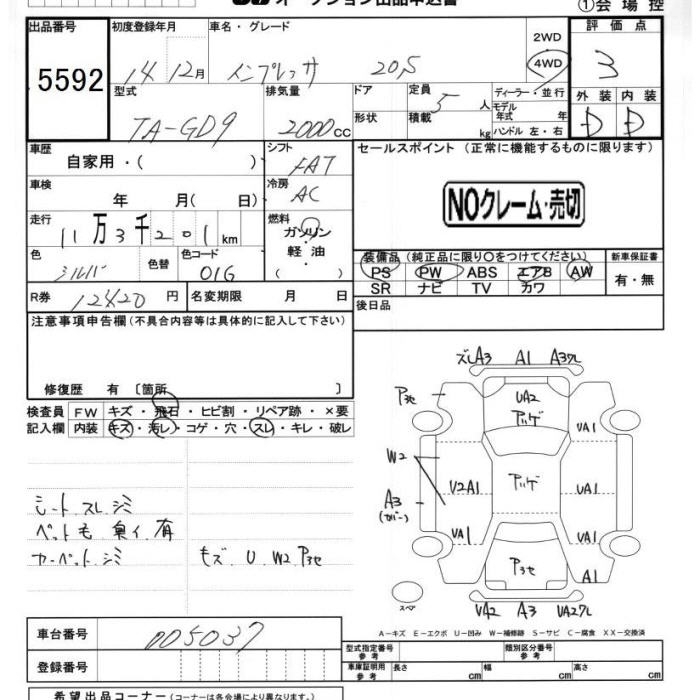 ①会場控
出品番号 初度登録年月 車名・グレード 2WD 評価点
5592 14 12月 インプレッサ 20S 4WD 3
型式 排気量 ドア 定員 ディーラー・並行 外装 内装
TA-GD9 2000cc 5人 モデル年式 年 D D
形状 積載 kg ハンドル 左・右
車歴 自家用・( ) シフト FAT セールスポイント(正常に機能するものに限ります)
車検 年 月(日) 冷房 AC
NOクレーム・売切
走行 11万3千201km 燃料 ガソリン・軽油 ( )
装備品(純正品に限り○をつけてください) 新車保証書
色 シルバ 色替 色コード 01G
PS PW ABS エアB AW 有・無
SR ナビ TV カワ
R券 12420円 名変期限 月 日
後日品
注意事項申告欄(不具合内容等は具体的に記入して下さい)
修復歴 有〔箇所 〕
検査員 FW キズ・飛石・ヒビ割・リペア跡・×要
記入欄 内装 キズ・汚レ・コゲ・穴・スレ・キレ・破レ
シート スレ シミ
ペット毛 臭イ 有
カーペット シミ
モズ U W2 P3セ
ズレA3 A1 A3ワレ
P3セ UA2 アハゲ UA1
W2 U2A1 アハゲ UA1
A3
(カバー)
UA1 UA1
P3セ A1
スペア UA2 A3 UA2ワレ
A-キズ E-エクボ U-凹み W-補修跡 S-サビ C-腐食 XX-交換済
車台番号 005037
登録番号
型式指定番号 参考 類別区分番号 参考
車庫証明用 参考 長さ cm 幅 cm 高さ cm
希望出品コーナー(コーナーは各会場により異なります。)